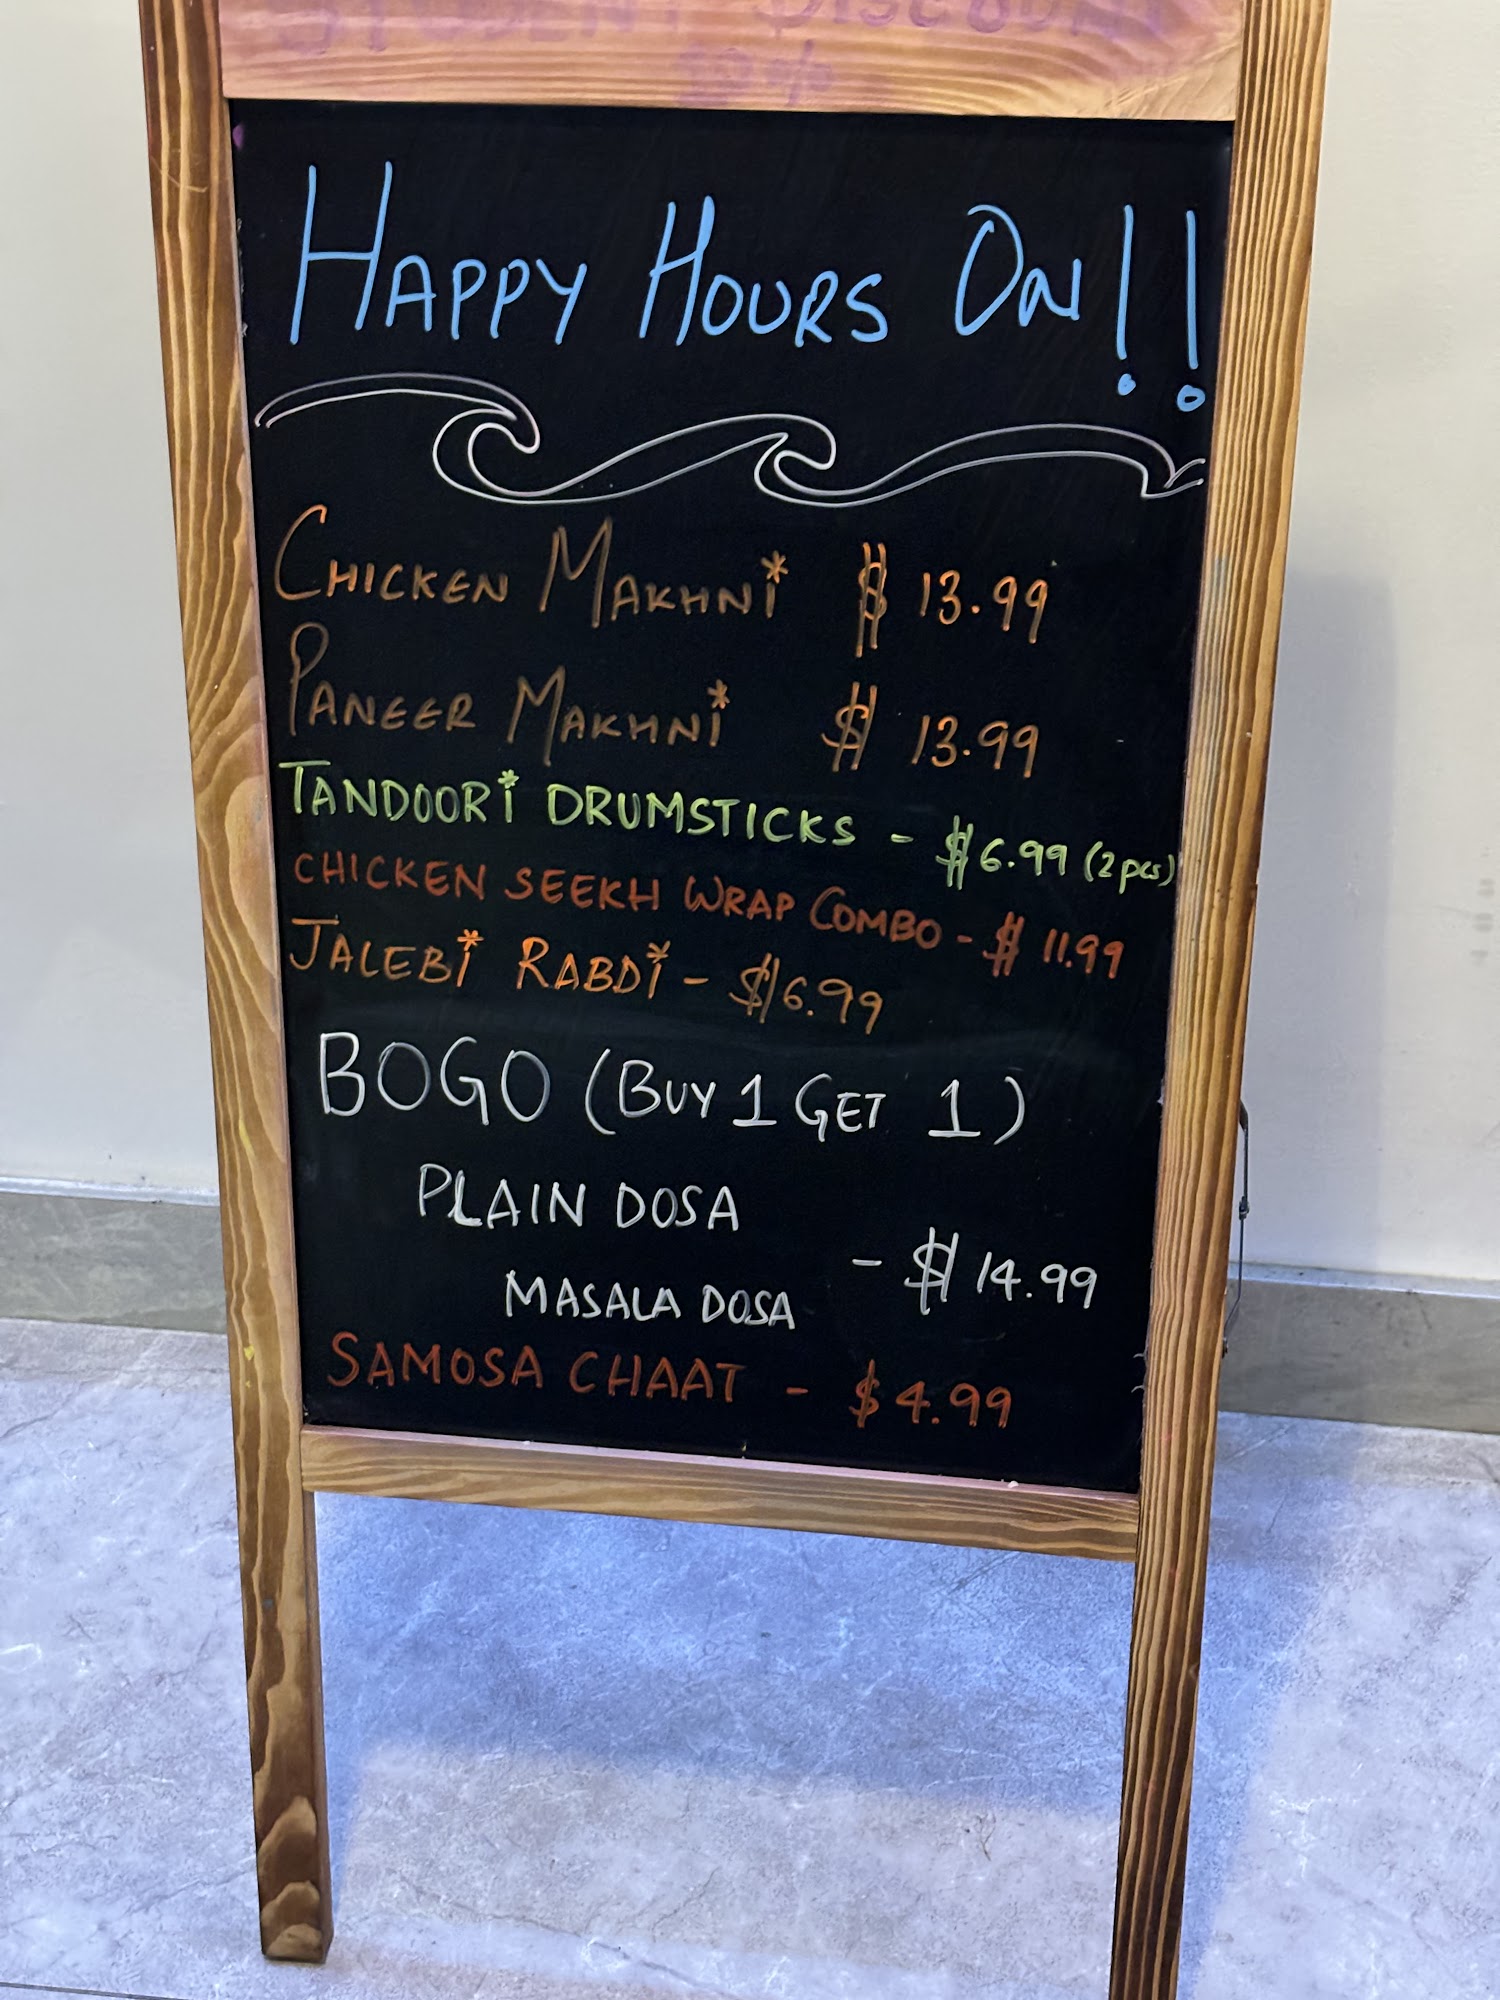 STUDENT DISCOUNT
HAPPY HOURS ON!!
CHICKEN MAKHNI $ 13.99
PANEER MAKHNI $ 13.99
TANDOORI DRUMSTICKS - $6.99 (2pcs)
CHICKEN SEEKH WRAP COMBO - $ 11.99
JALEBI RABDI - $6.99
BOGO (BUY 1 GET 1)
PLAIN DOSA
MASALA DOSA - $ 14.99
SAMOSA CHAAT - $4.99